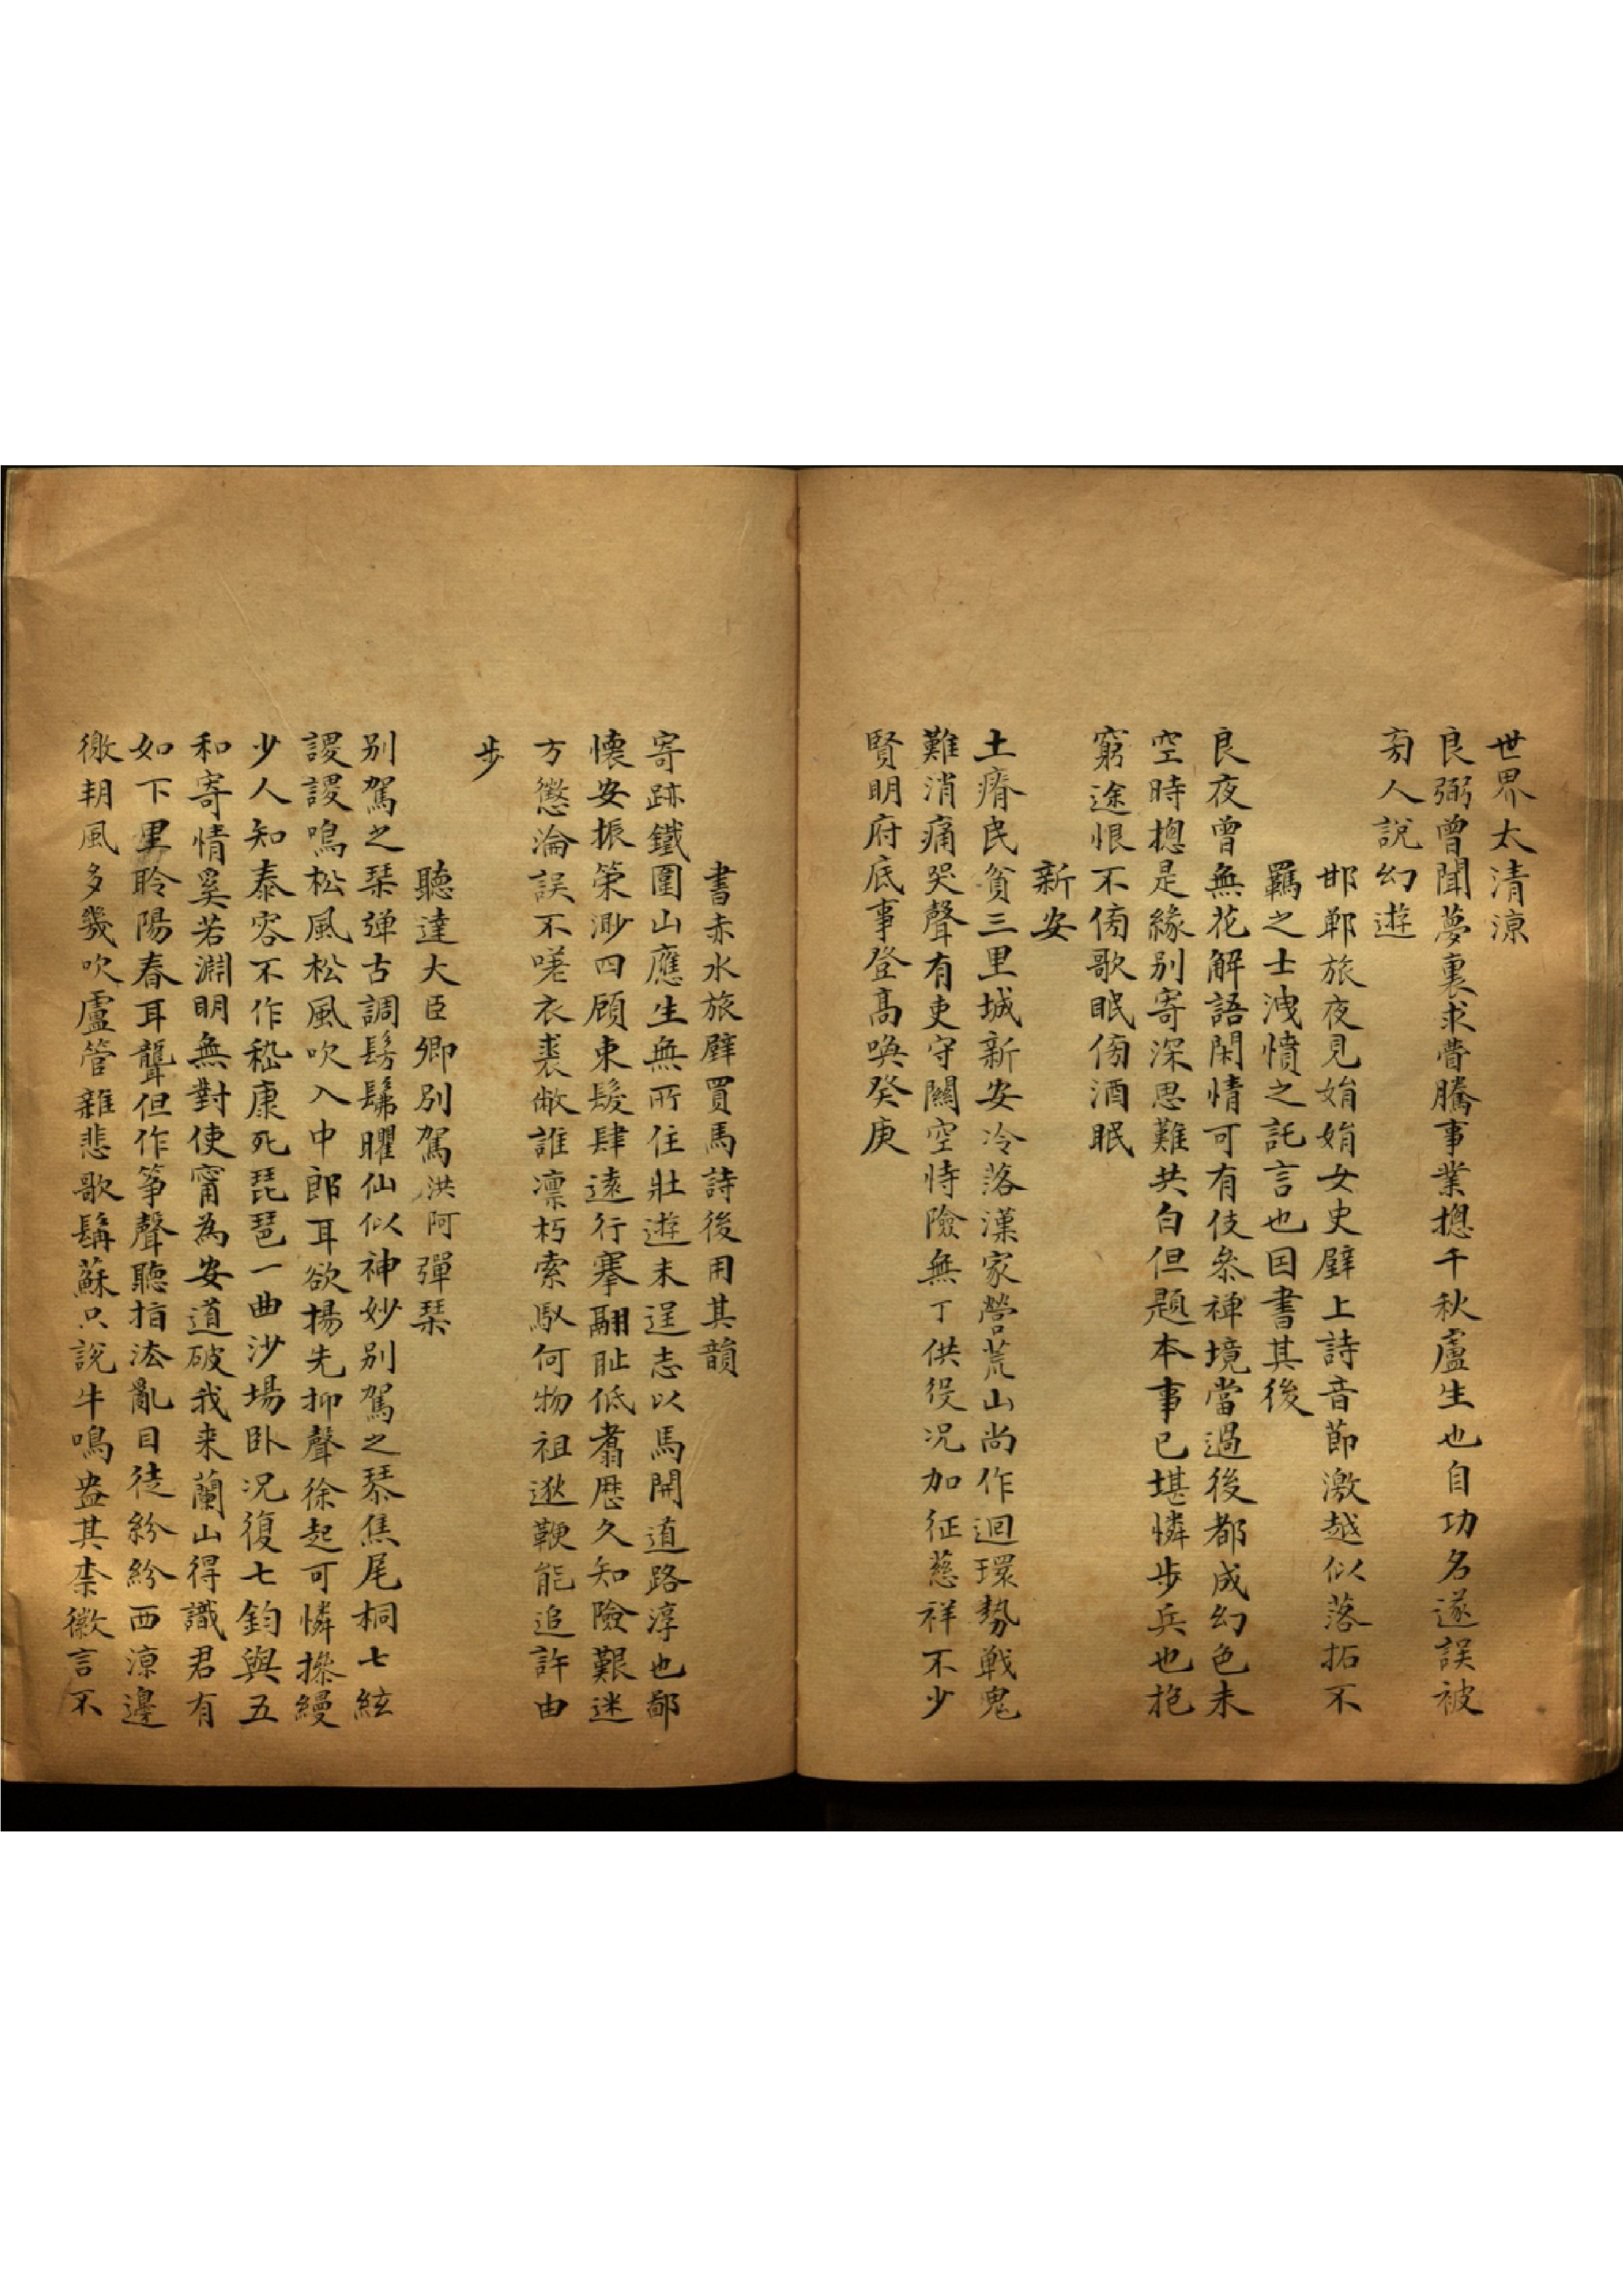 世界太清涼
良弼曾聞夢裏求瞢騰事業摠千秋盧生也自功名遂誤被
旁人說幻遊
邯鄲旅夜見娟娟女史壁上詩音節激越似落拓不
羈之士洩憤之託言也因書其後
良夜曾無花解語閑情可有伎叅禪境當過後都成幻色未
空時摠是緣別寄深思難共白但題本事已堪憐步兵也抱
窮途恨不傍歌眠傍酒眠
新安
土瘠民貧三里城新安冷落漢家營荒山尚作迴環勢戰鬼
難消痛哭聲有吏守關空恃險無丁供役况加征慈祥不少
賢明府底事登高喚癸庚
書赤水旅壁買馬詩後用其韻
寄跡鐵圍山應生無所住壯遊未逞志以馬開道路淳也鄙
懷安振策渺四顧束髮肆遠行搴翮恥低翥歷久知險艱迷
方懲淪誤不嗟衣裘敝誰凛朽索馭何物祖逖鞭能追許由
步
聽達大臣卿別駕洪阿彈琹
別駕之琹弹古調髣髴曜仙似神妙別駕之琴焦尾桐七絃
謖謖鳴松風松風吹入中郎耳欲揚先抑聲徐起可憐操縵
少人知泰容不作嵇康死琵琶一曲沙場卧况復七鈞與五
和寄情奚若淵明無對使甯為安道破我来蘭山得識君有
如下里聆陽春耳聾但作筝聲聽指法亂目徒紛紛西涼邊
徼朔風多幾吹盧管雜悲歌髯蘇只說牛鳴盎其柰徽言不